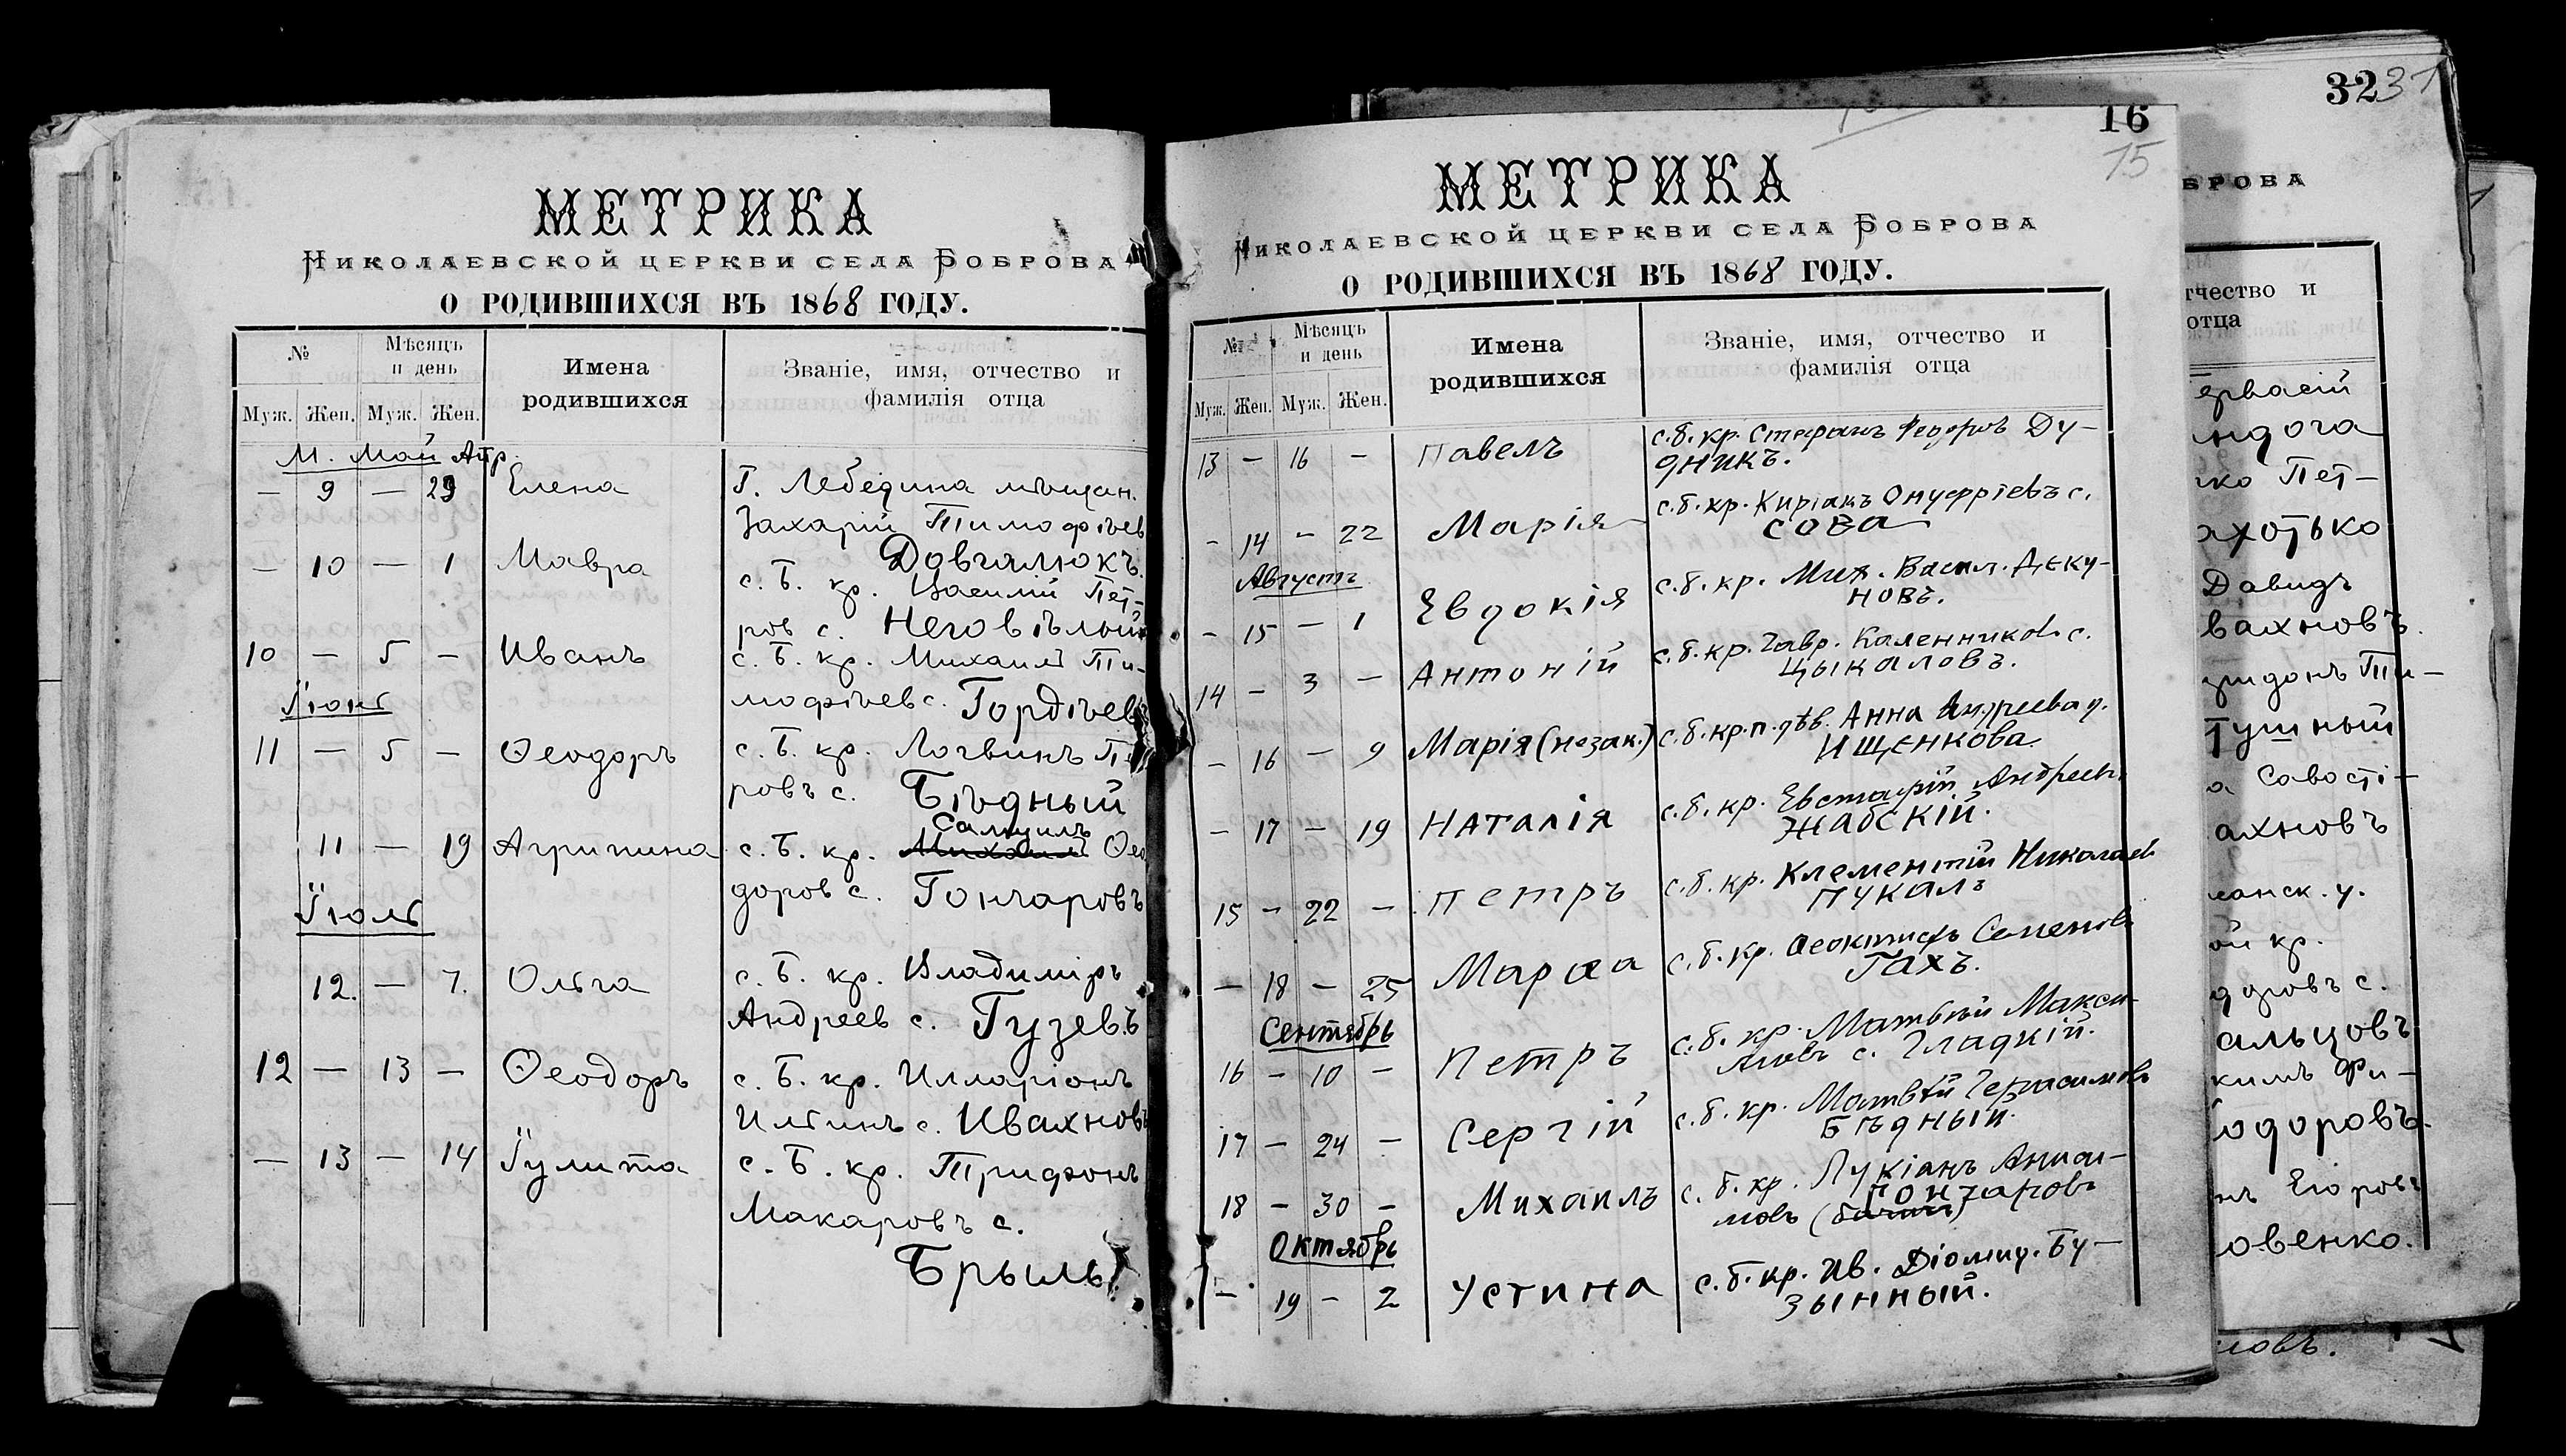 МЕТРИКА
НИКОЛАЕВСКОЙ ЦЕРКВИ СЕЛА БОБРОВА
О РОДИВШИХСЯ ВЪ 1868 ГОДУ.
№ Мѣсяцъ и день Имена родившихся Званіе, имя, отчество и фамилія отца
Муж. Жен. Муж. Жен.
М. Май Апр.
— 9 — 29 Елена Г. Лебедина мѣщан.
Захарій Тимофѣев
Довгалюкъ.
— 10 — 1 Мавра с. Б. кр. Василій Пет-
ров с. Неговѣлый
10 — 5 — Иванъ с. Б. кр. Михаилъ Ти-
мофѣев с. Гордѣевъ
Іюнь
11 — 5 — Ѳеодоръ с. Б. кр. Логвинъ
ровъ с. Бѣдный
Самуилъ
11 — 19 Агрипина с. Б. кр. Михаилъ Ѳео
доров с. Гончаровъ
Іюль
12. — 7. Ольга с. Б. кр. Владиміръ
Андреев с. Гузевъ
12 — 13 — Ѳеодоръ с. Б. кр. Илларіонъ
Ильинъ с. Ивахновъ
— 13 — 14 Іулита с. Б. кр. Трифонъ
Макаровъ с.
Брыль
16
15
МЕТРИКА
НИКОЛАЕВСКОЙ ЦЕРКВИ СЕЛА БОБРОВА
О РОДИВШИХСЯ ВЪ 1868 ГОДУ.
№ Мѣсяцъ и день Имена родившихся Званіе, имя, отчество и фамилія отца
Муж. Жен. Муж. Жен.
13 — 16 — Павелъ с. б. кр. Стефанъ Федоров Ду-
дникъ.
— 14 — 22 Марія с. б. кр. Киріакъ Онуфріевъ с.
Сова
Августъ
— 15 — 1 Евдокія с. б. кр. Мих. Васил. Деку-
новъ.
14 — 3 — Антоній с. б. кр. Гавр. Каленников с.
Цыкаловъ.
— 16 — 9 Марія (незак.) с. б. кр. п. дѣв. Анна Андреева д.
Ищенкова
— 17 — 19 Наталія с. б. кр. Евстафій Андреев.
Жабскій.
15 — 22 — Петръ с. б. кр. Клементій Николаев
Пукалъ
— 18 — 25 Марѳа с. б. кр. Ѳеоктистъ Семенов
Гахъ.
Сентябрь
16 — 10 — Петръ с. б. кр. Матвѣй Макси-
мовъ с. Гладкій.
17 — 24 — Сергій с. б. кр. Матвѣй Герасимовъ
Бѣдный.
18 — 30 — Михаилъ с. б. кр. Лукіанъ Аниси-
мовъ Гончаровъ
Октябрь
— 19 — 2 Устина с. б. кр. Ив. Діомид. Бу-
зынный.
32 31
БРОВА
тчество и
отца
ервасій
ндога
ко Пет-
ахотько
Давидъ
вахновъ.
ридонъ Ти-
Тушный
а Савості-
ахновъ
анск. у.
ой кр.
доровъ с.
альцовъ
кимъ Фи-
одоровъ.
нъ Егоровъ
овенко.
новъ.